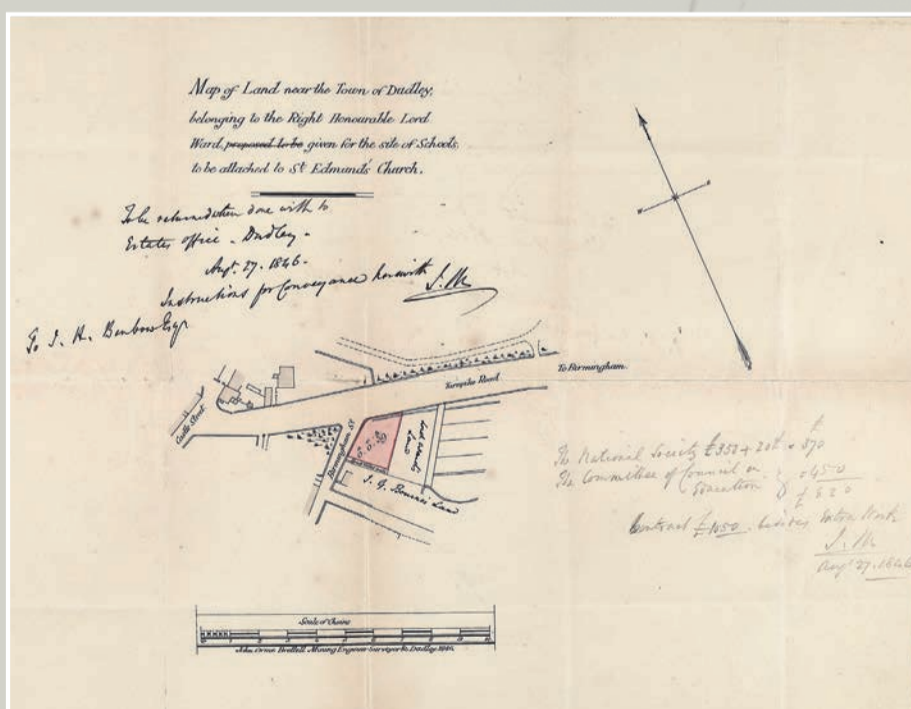 Map of Land near the Town of Dudley,
belonging to the Right Honourable Lord
Ward, proposed to be given for the site of Schools,
to be attached to St. Edmund's Church.
To be returned when done with to
Estates office - Dudley -
Augt. 27. 1846 -
Instructions for Conveyance herewith
To J. H. Benbow Esqr
Castle Street
Turnpike Road
To Birmingham
Birmingham St
Lord Ward's Land
Land
The National Society £350 + 20£ = 370
The Committee of Council on
Education 450
£820
Contract £1050 besides Extra Work
Augt 27. 1846
Scale of Chains
Mining Engineer Surveyor &c. Dudley 1846.